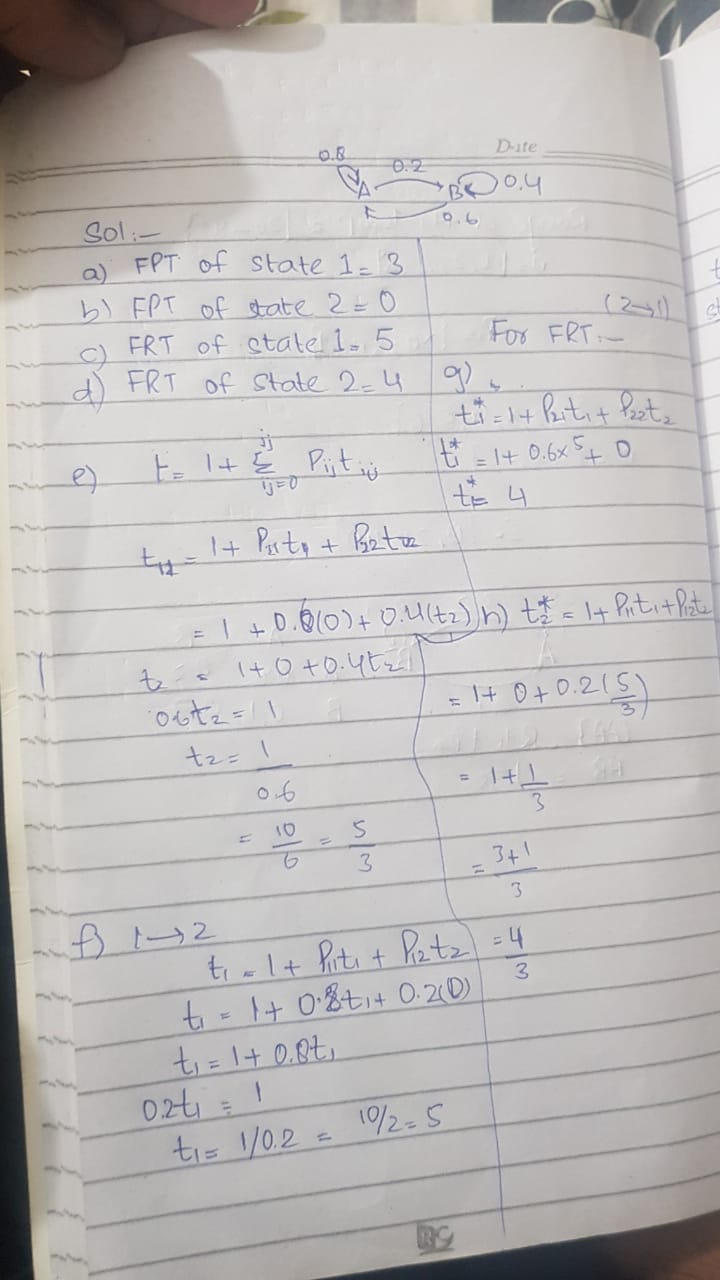 Date
0.8
0.2
A
B
0.4
0.6
Sol:-
a) FPT of state 1 = 3
b) FPT of state 2 = 0
c) FRT of state 1 = 5
d) FRT of state 2 = 4
e) t = 1 + Σ Pij tij
jj
ij=0
= 1 + 0.6(0) + 0.4(t2)
t2 = 1 + 0 + 0.4t2
0.6t2 = 1
t2 = 1
0.6
= 10/6 = 5/3
f) 1→2
t1 = 1 + P11t1 + P12t2
t1 = 1 + 0.8t1 + 0.2(0)
t1 = 1 + 0.8t1
0.2t1 = 1
t1 = 1/0.2 = 10/2 = 5
(2→1)
For FRT:-
g)
t1* = 1 + P21t1 + P22t2
t1* = 1 + 0.6x5 + 0
t1* = 4
h) t2* = 1 + P11t1 + P12t2
= 1 + 0 + 0.2(5/3)
= 1 + 1/3
= 3+1/3
= 4/3